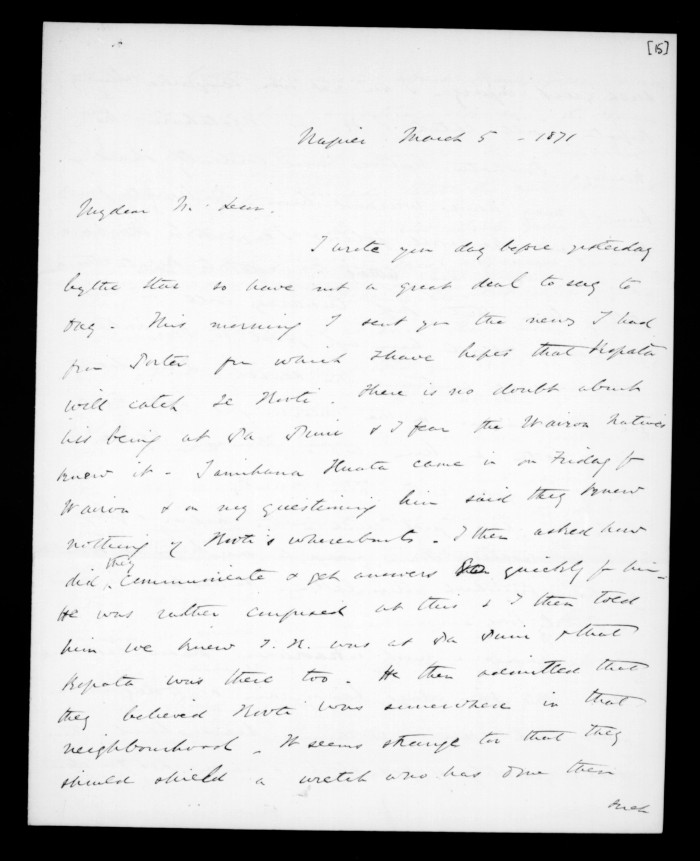 [15]
Napier March 5 - 1871
My dear Mr. Lean.
I wrote you day before yesterday
by the Star so have not a great deal to say to
day - This morning I sent you the news I had
from Porter from which I have hopes that Ropata
will catch Te Kooti. There is no doubt about
his being at Te & I fear the Wairoa Natives
knew it - Tamihana Huata came in on Friday fr
Wairoa & on my questioning him said they knew
nothing of Kooti's whereabouts - I then asked how
did they communicate & get answers so quickly fr him -
He was rather confused at this & I then told
him we knew T.K. was at & that
Ropata was there too - He then admitted that
they believed Kooti was somewhere in that
neighbourhood. It seems strange to that they
should shield a wretch who has done them
such